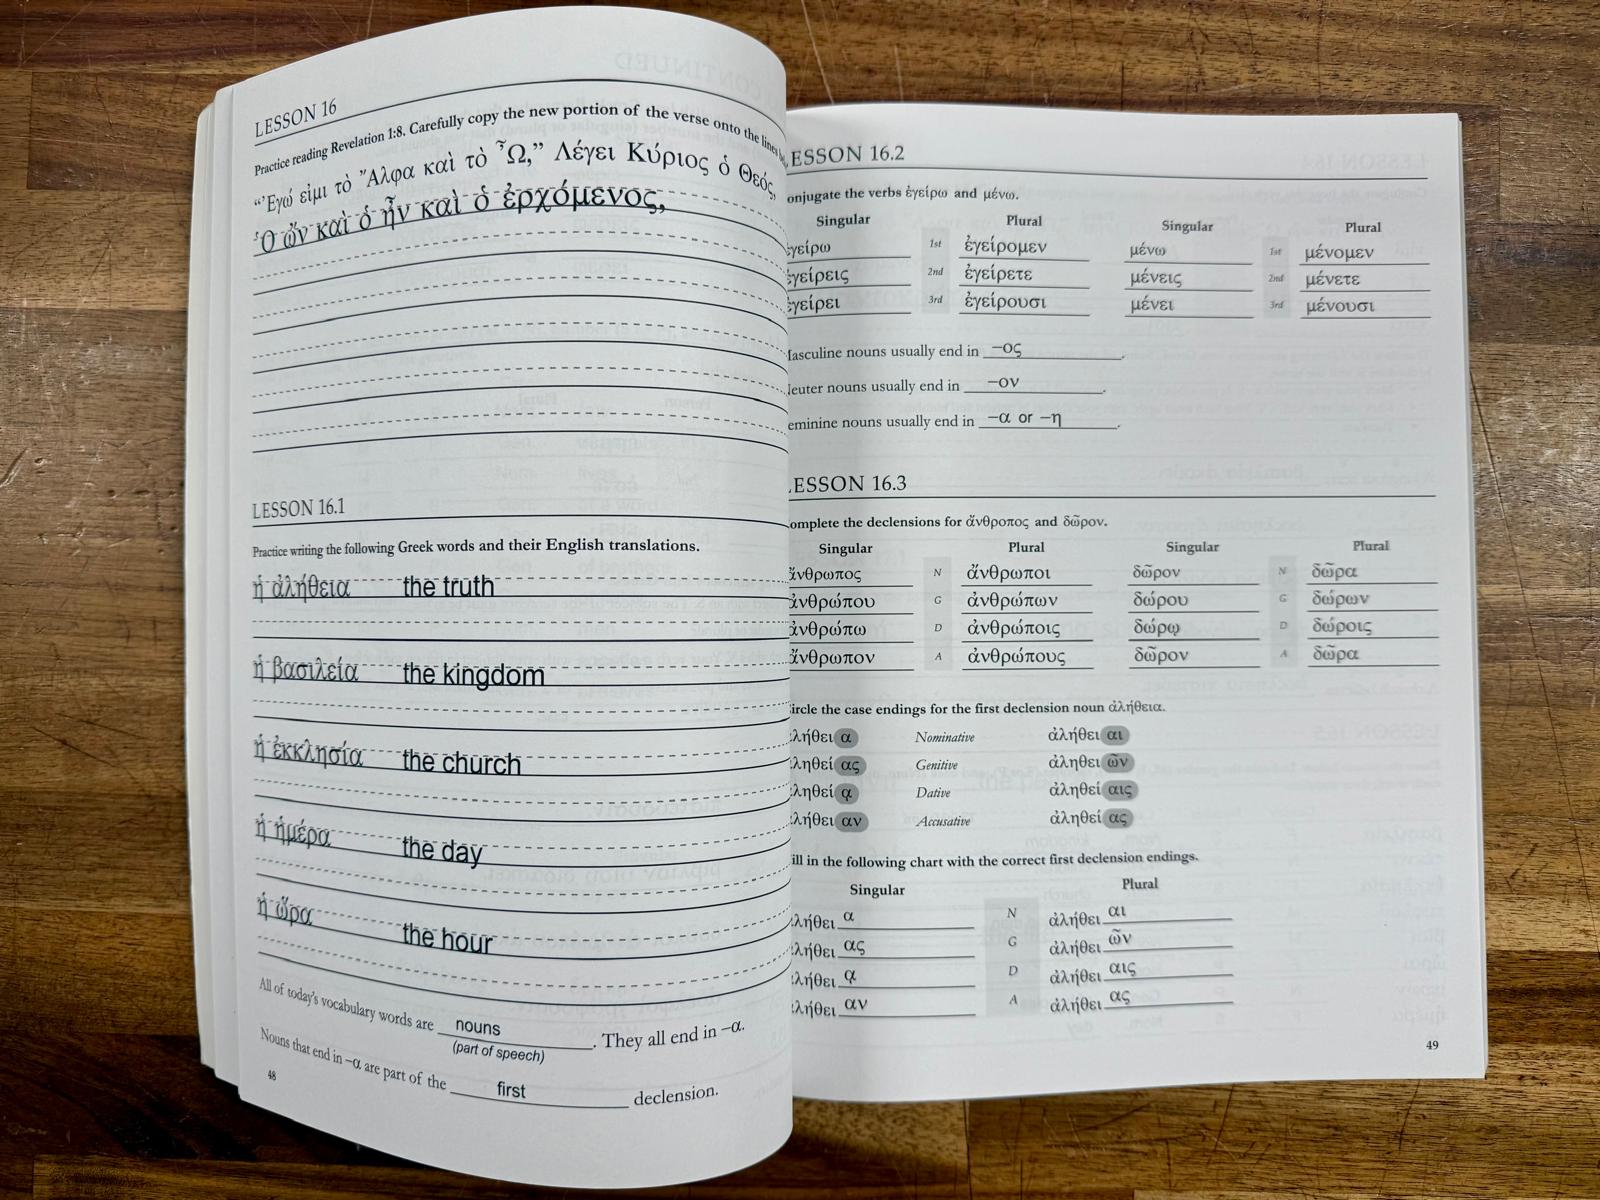 LESSON 16
Practice reading Revelation 1:8. Carefully copy the new portion of the verse onto the lines
“Ἐγώ εἰμι τὸ Ἄλφα καὶ τὸ Ὦ,” Λέγει Κύριος ὁ Θεός,
Ὁ ὤν καὶ ὁ ἦν καὶ ὁ ἐρχόμενος,
LESSON 16.1
Practice writing the following Greek words and their English translations.
ἡ ἀλήθεια the truth
ἡ βασιλεία the kingdom
ἡ ἐκκλησία the church
ἡ ἡμέρα the day
ἡ ὥρα the hour
All of today's vocabulary words are nouns. They all end in –α.
(part of speech)
Nouns that end in –α are part of the first declension.
48
ESSON 16.2
onjugate the verbs ἐγείρω and μένω.
Singular Plural Singular Plural
ἐγείρω 1st ἐγείρομεν μένω 1st μένομεν
ἐγείρεις 2nd ἐγείρετε μένεις 2nd μένετε
ἐγείρει 3rd ἐγείρουσι μένει 3rd μένουσι
asculine nouns usually end in –ος.
euter nouns usually end in –ον.
eminine nouns usually end in –α or –η.
LESSON 16.3
omplete the declensions for ἄνθροπος and δῶρον.
Singular Plural Singular Plural
ἄνθρωπος N ἄνθρωποι δῶρον N δῶρα
ἀνθρώπου G ἀνθρώπων δώρου G δώρων
ἀνθρώπω D ἀνθρώποις δώρῳ D δώροις
ἄνθρωπον A ἀνθρώπους δῶρον A δῶρα
ircle the case endings for the first declension noun ἀλήθεια.
λήθει α Nominative ἀλήθει αι
ληθεί ας Genitive ἀληθει ῶν
ληθεί ᾳ Dative ἀληθεί αις
λήθει αν Accusative ἀληθεί ας
ill in the following chart with the correct first declension endings.
Singular Plural
λήθει α N ἀλήθει αι
λήθει ας G ἀλήθει ῶν
λήθει ᾳ D ἀλήθει αις
λήθει αν A ἀλήθει ας
49